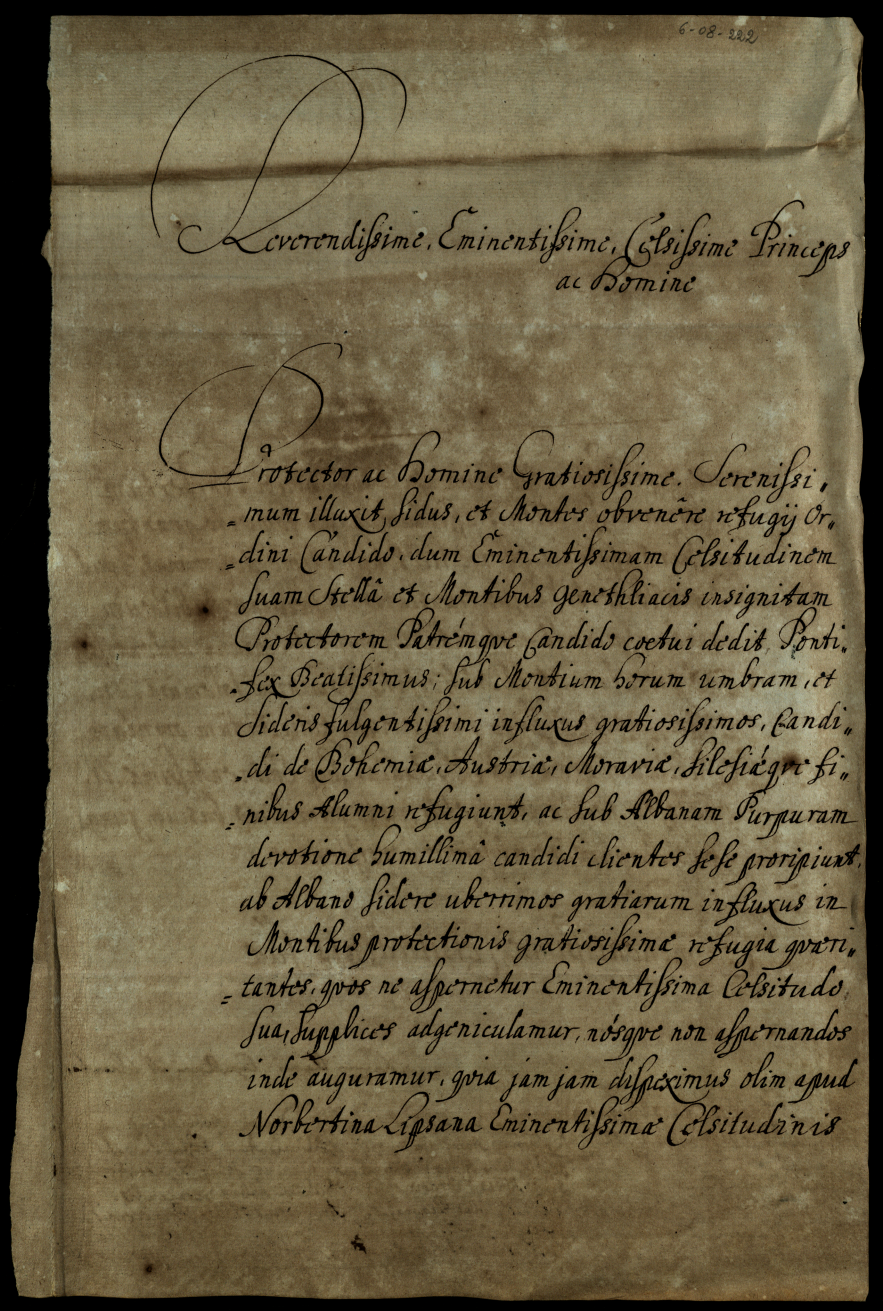 6-08-222
Reverendissime, Eminentissime, Celsissime Princeps
ac Domine
Protector ac Domine Gratiosissime. Serenissi„
„mum illuxit sidus, et Montes obvenêre refugij Or„
„dini Candido, dum Eminentissimam Celsitudinem
suam Stellâ et Montibus genethliacis insignitam
Protectorem Patrémqve Candido coetui dedit, Ponti„
„fex Beatissimus; sub Montium horum umbram, et
Sideris fulgentissimi influxus gratiosissimos, Candi„
„di de Bohemiæ, Austriæ, Moraviæ, Silesiǽqve fi„
„nibus Alumni refugiunt, ac sub Albanam Purpuram
devotione humillimâ candidi clientes sese proripiunt,
ab Albano sidere uberrimos gratiarum influxus in
Montibus protectionis gratiosissimæ refugia qværi„
„tantes, qvos ne aspernetur Eminentissima Celsitudo
sua, supplices adgeniculamur, nósqve non aspernandos
inde auguramur, qvia jam jam dispeximus olim apud
Norbertina Lipsana Eminentissimæ Celsitudinis